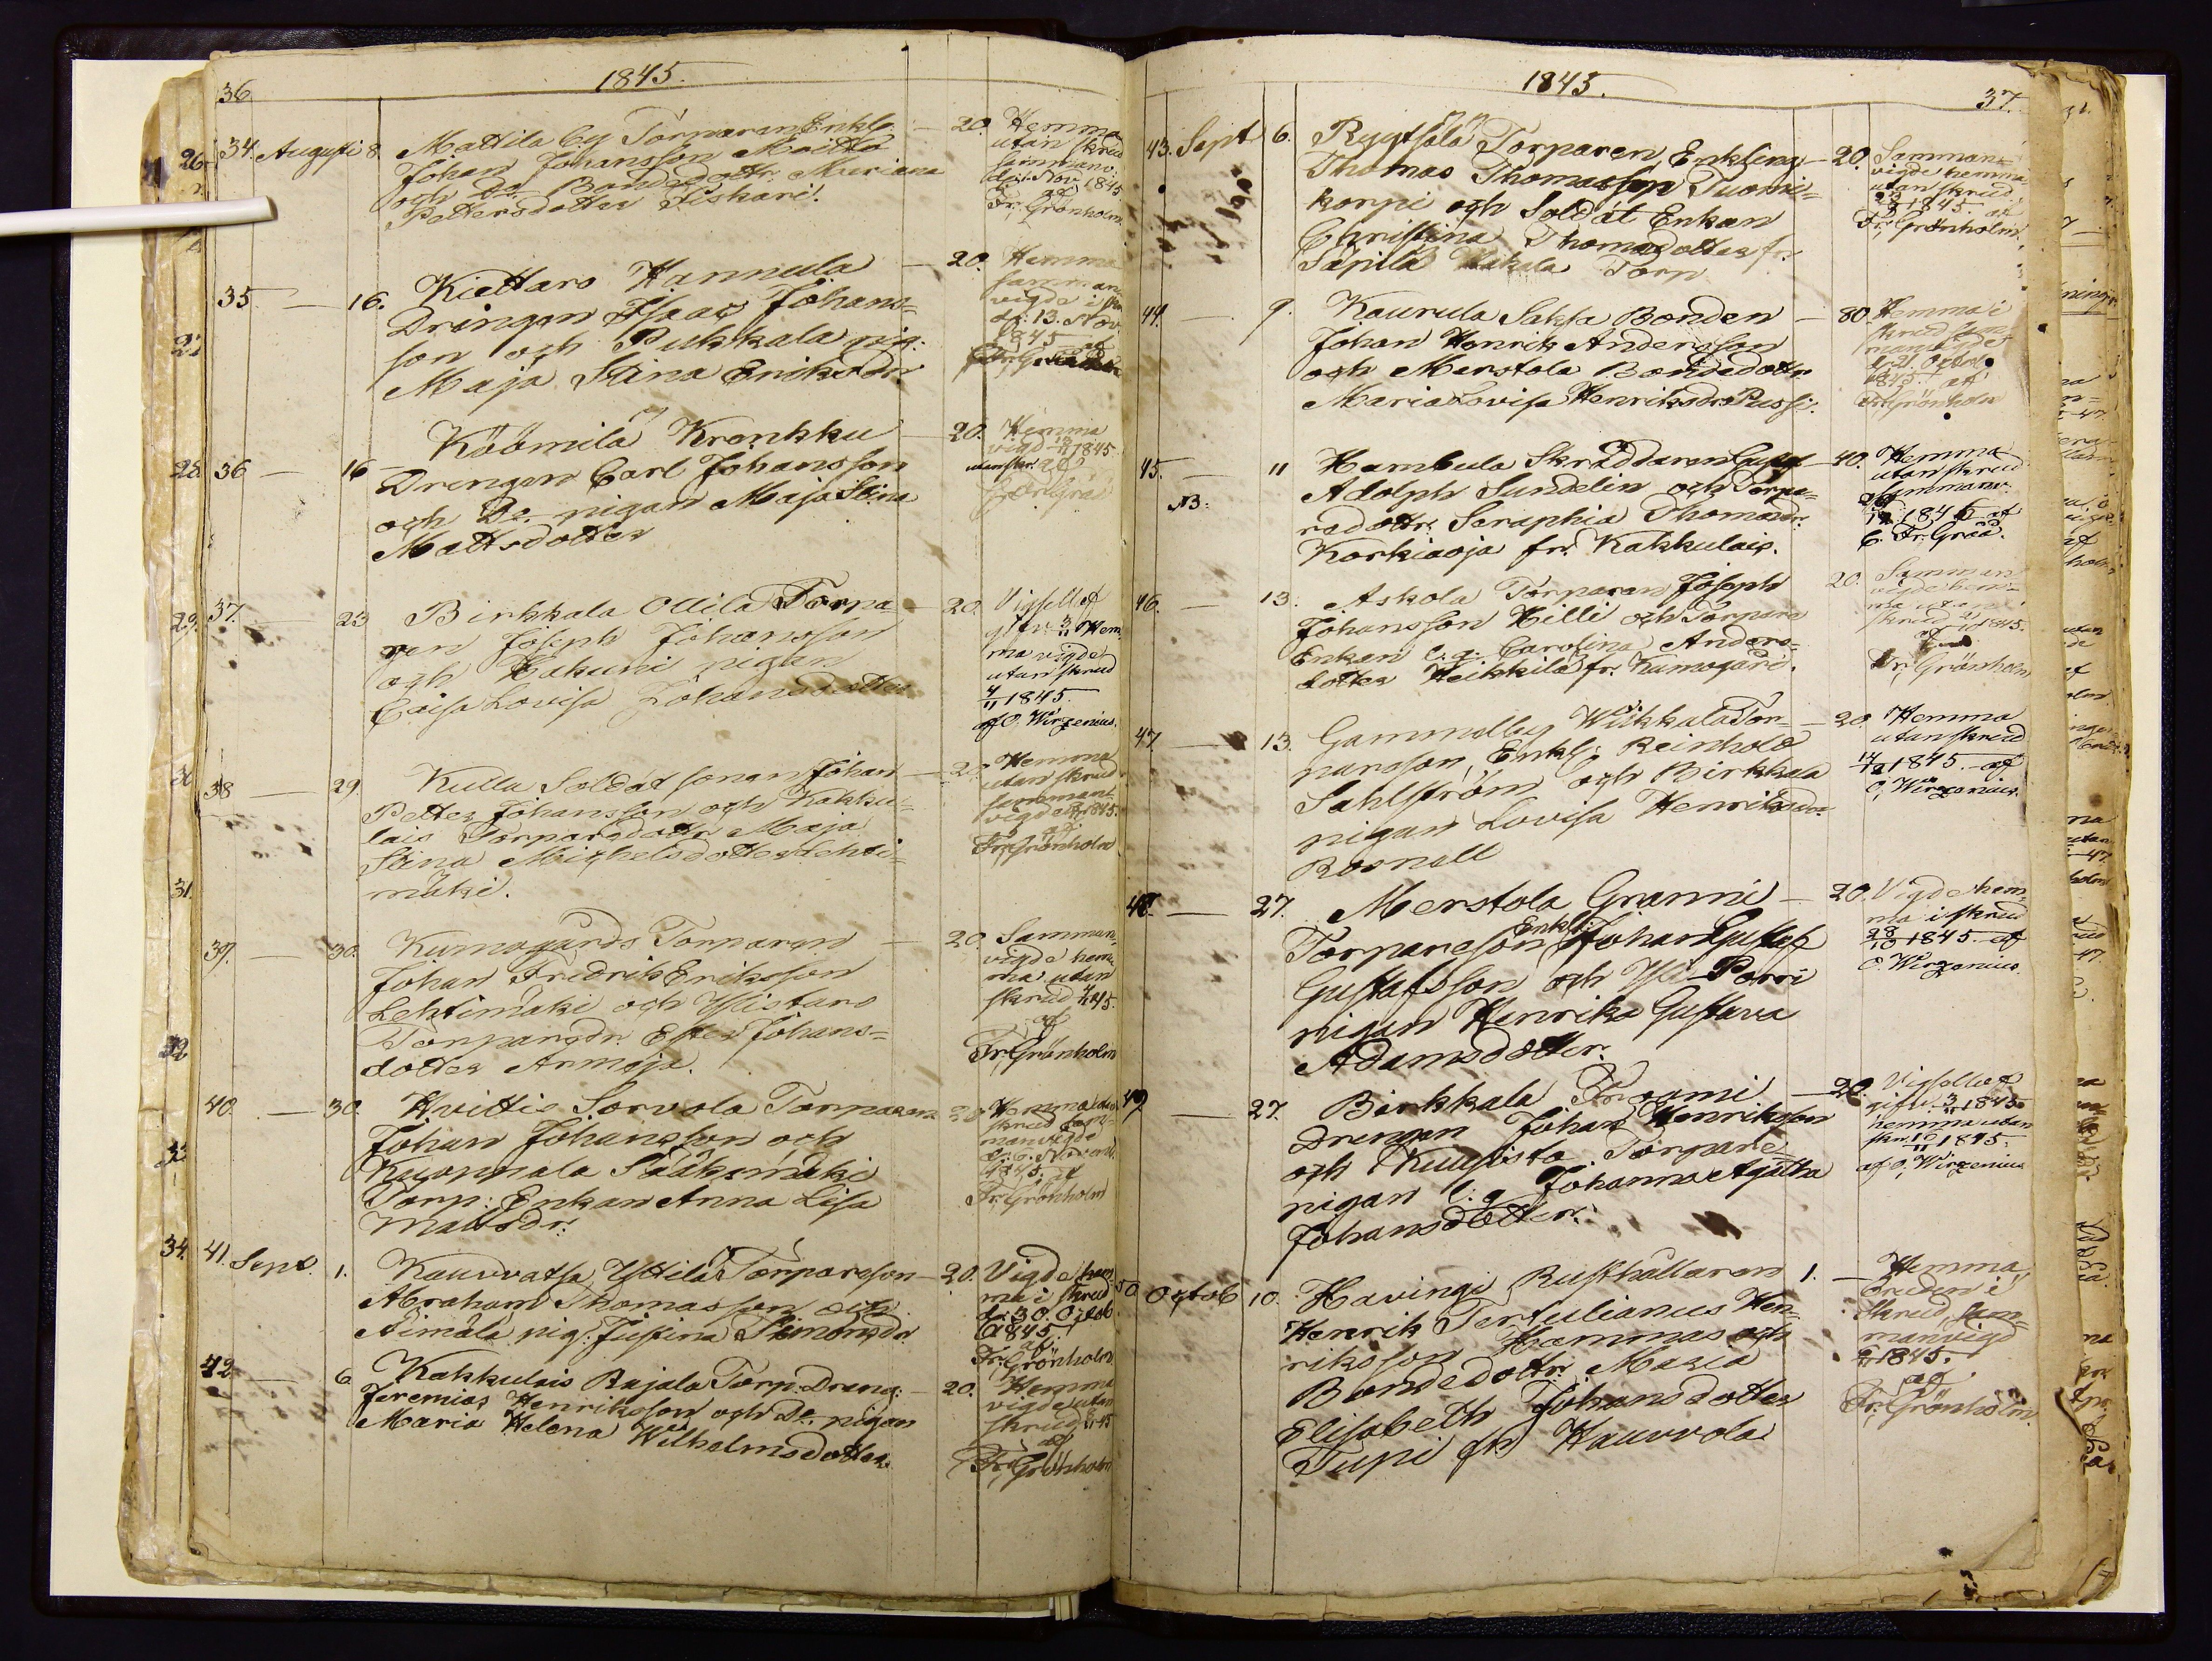 36
1845.
34. Augusti 8. Mattila by Torparen Enkl.
Johan Johansson Maitto
och Do Bondedottr. Mariana
Pettersdotter Piskari.
20. Hemma
utan skrud
sammanv.
d. 1. Nov. 1845
af
Fr. Grönholm
35 — 16. Kiettars Hannula
Drängen Isaac Johans=
son och Pukkala pig.
Maja Stina Eriksdr.
20. Hemma
samman
vigde i
d. 13. Nov.
1845 af
36 — 16 Köömilä Krankku
Drengen Carl Johansson
och Do. pigan Maja Stina
Mattsdotter
20. Hemma
vigd 1845
utan skr. af
37. — 23 Birkkala Ollila Torpa
ren Joseph Johansson
och Hakuni pigan
Caisa Lovisa Johansdotter
20. Vigsell af
gifv. 3/11 Hem
ma vigde
utan skrud
4/11 1845
af O. Wirzenius.
38 — 29 Kulla Soldat sonen Johan
Petter Johansson och Kakku=
lais Torparedottr. Maja
Stina Michelsdotter Lehti=
mäki.
20. Hemma
utan skrud
samman
vigde 1845.
af
Fr. Grönholm
39. — 30. Kumogårds Torparen
Johan Fredrik Eriksson
Lehtimäki och Ylistaro
Torparedr. Ester Johans=
dotter Armoja.
20. Samman
vigde hem
ma utan
skrud 45.
af
Fr. Grönholm
40. — 30. Hvittis Sorvola Torparen
Johan Johansson och
Kuoppala Sääksmäki
Torp: Enkan Anna Lisa
Mattsdr.
20. Hemma
skrud sam=
manvigde
d. 6. Novemb.
1845, af
Fr. Grönholm
41. Sept. 1. Kauvvatsa Yttilä Torpareson
Abraham Thomasson och
Äimälä pig. Justina Simonsdr
20. Vigde hem
ma i skrud
d. 30. Octob
1845
af
Fr. Grönholm.
42 — 6 Kakkulais Rajala Torp. Dräng.
Jeremias Henriksson och Do. pigan
Maria Helena Wilhelmsdotter.
20. Hemma
vigde utan
skrud 45
af
Fr. Grönholm
1845.
37.
43. Sept 6. Ryytsälä Torparen Enkling
Thomas Thomasson Tuomi=
korpi och Soldat Enkan
Christina Thomasdotter fr.
Säpilä Torp
20. Samman=
vigde hemma
utan skrud
1845. af
Fr. Grönholm
44. — 9. Kaurula Saksa Bonden
Johan Henrik Andersson
och Merstola Bondedottr.
Maria Lovisa Henriksdr. Pussi.
80. Hemma i
skrud sam=
manvigde
d. 21. Octob.
1845. af
Fr. Grönholm
45. — 11 Harnbula Skräddaren Gustaf
NB. Adolph Sundelin och Torpa=
redottr. Seraphia Thomasdr.
Korkiaoja fr. Kakkulais.
40. Hemma
utan skrud
sammanv.
1845 af
C. Fr. Gråå.
46. — 13. Askola Torparen Joseph
Johansson Hilli och Torpare
Enkan e. q. Carolina Anders=
dotter Heikkilä fr. Kumogård.
20. Samman
vigde hem=
ma utan
skrud
1845.
Fr. Grönholm
47. — 13. Gammelby Wiikkala Tor=
pareson, Enkl. Reinhold
Sahlström och Birkkala
pigan Lovisa Henriksdr.
Rosnell
20. Hemma
utan skrud
1845. af
O. Wirzenius.
48. — 27. Merstola Granni
Enkl.
Torpareson Johan Gustaf
Gustafsson och Yli-Porri
pigan Henrika Gustava
Adamsdotter.
20. Vigde hem
ma i skrud
28/10 1845. af
O. Wirzenius.
49 — 27. Birkkala Frommi
Drengen Johan Henriksson
och Kuusisto Torpare
pigan e. q. Johanna Agatha
Johansdotter.
20. Vigsell af
gifv. 3/11 1845
hemma utan
skr. 10/11 1845.
af O. Wirzenius
50 Octob 10. Havingi Rusthållaren
Henrik Tertulianus Hen=
riksson Hemmas och
Bondedottr. Maria
Elisabeth Johansdotter
Tupi fr. Hauvola
1. Hemma
bruden i
skrud, sam=
manvigd
1845.
af
Fr. Grönholm